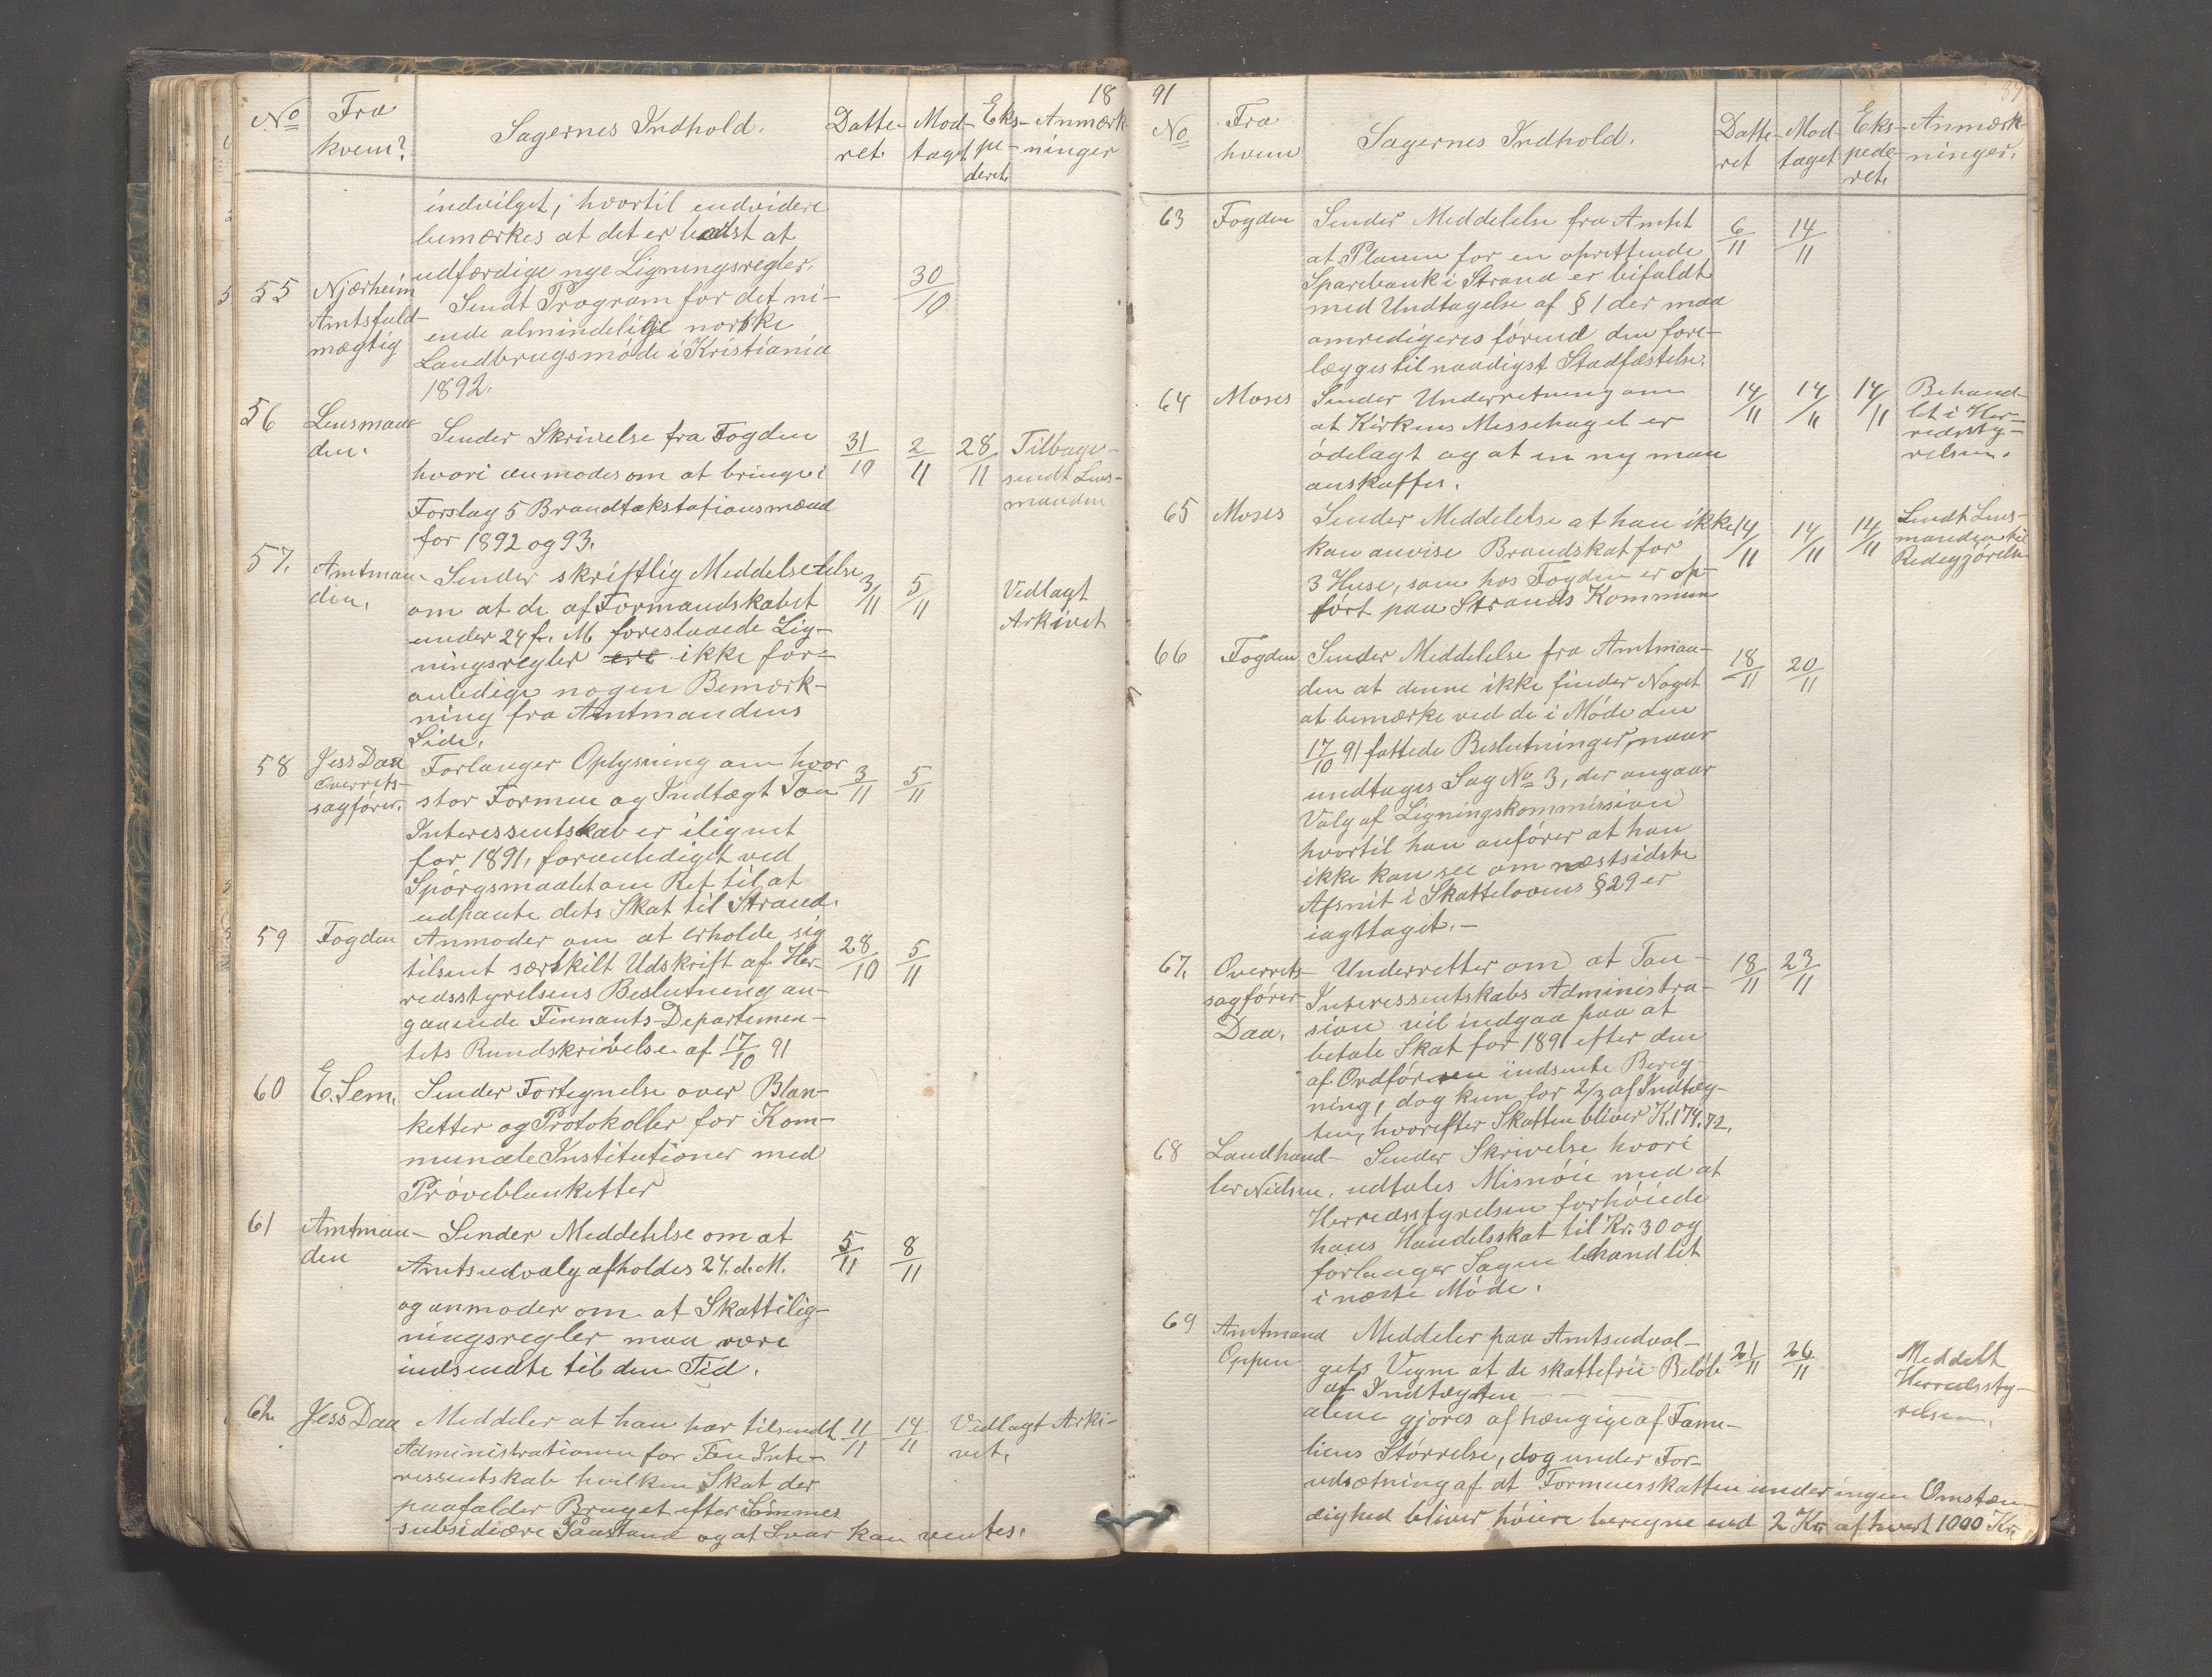 18
No
Fra
hvem?
Sagernes Indhold.
Datte-
ret
Mod-
taget
Eks-
pe-
deret.
Anmærk-
ninger
indvilget, hvortil endvidere
bemærkes at det er bedst at
udfærdige nye Ligningsregler.
55 Njærheim
Amtsfuld-
mægtig
Sendt Program for det ni-
ende almindelige norske
Landbrugsmöde i Kristiania
1892.
30/10
56 Lensman-
den.
Sender Skrivelse fra Fogden
hvori anmodes om at bringe i
Forslag 5 Brandtakstationsmænd
for 1892 og 93.
31/10 2/11 28/11
Tilbage-
sendt Lens-
manden
57. Amtman-
den.
Sender skriftlig Meddelse
om at de af Formandskabet
under 24 f. M. foreslaaede Lig-
ningsregler ere ikke for-
anledige nogen Bemærk-
ning fra Amtmandens
Side.
3/11 5/11
Vedlagt
Arkivet
58 Jess Daa
Overrets-
sagförer.
Forlanger Oplysning om hvor
stor Formue og Indtægt Tou
Interessentskab er ilignet
for 1891, foranlediget ved
Spörgsmaalet om Ret til at
udpante dets Skat til Strand.
3/11 5/11
59 Fogden
Anmoder om at erholde sig
tilsent særskilt Udskrift af Her-
redsstyrelsens Beslutning an-
gaaende Finnants-Departemen-
tets Rundskrivelse af 17/10 91
28/10 5/11
60 E. Sem.
Sender Fortegnelse over Blan-
ketter og Protokoller for Kom-
munale Institutioner med
Pröveblanketter
61 Amtman-
den
Sender Meddelelse om at
Amtsudvalg afholdes 24. d. M.
og anmoder om at Skattelig-
ningsregler maa være
indsendte til den Tid.
5/11 8/11
62 Jess Daa
Meddeler at han har tilsendt
Administrationen for Tou Inte-
ressentskab hvilken Skat der
paafalder Bruget efter Sömmes
subsidiære Paastand og at Svar kan ventes.
11/11 14/11
Vedlagt Arki-
vet.
91
37
No
Fra
hvem
Sagernes Indhold.
Datte-
ret
Mod-
taget
Eks-
pede-
ret.
Anmærk-
ninger.
63 Fogden
Sender Meddelelse fra Amtet
at Planen for en oprettende
Sparebank i Strand er bifaldt
med Undtagelse af § 1 der maa
omredigeres förend den fore-
lægges til naadigst Stadfæstelse.
6/11 14/11
64 Moses
Sender Underretning om
at Kirkens Messehagel er
ödelagt og at en ny maa
anskaffes.
14/11 14/11 14/11
Behand-
let i Her-
redssty-
relsen.
65 Moses
Sender Meddelelse at han ikke
kan anvise Brandskat for
3 Huse, som hos Fogden er op-
fört paa Strands Kommune
14/11 14/11 14/11
Sendt Lens-
manden til
Redegjörelse
66 Fogden
Sender Meddelelse fra Amtman-
den at denne ikke finder Noget
at bemærke ved de i Möde den
17/10 91 fattede Beslutninger, naar
undtages Sag No 3, der angaar
Valg af Ligningskommission
hvortil han anförer at han
ikke kan see om næstsidste
Afsnit i Skattelovens § 29 er
iagttaget.-
18/11 20/11
67. Overrets-
sagförer
Daa.
Underretter om at Tou-
Interessentskabs Administra-
sion vil indgaa paa at
betale Skat for 1891 efter den
af Ordföreren indsente Bereg-
ning, dog kun for 2/3 af Indtæg-
ten, hvorefter Skatten bliver K. 174.72.
18/11 23/11
68 Landhand-
ler Nielsen.
Sender Skrivelse hvori
udtales Misnöie med at
Herredsstyrelsen forhöiede
hans Handelsskat til Kr. 30 og
forlanger Sagen behandlet
i næste Möde.
69 Amtmand
Oppen
Meddeler paa Amtsudval-
gets Vegne at de skattefrie Belöb
af Indtægten - - -
alene gjores afhængige af Fami-
liens Störrelse, dog under For-
udsætning af at Formuesskatten under ingen Omstæn-
dighed bliver höiere beregne end 2 Kr. af hvert 1000 Kr.
21/11 26/11
Meddelt
Herredssty-
relsen.